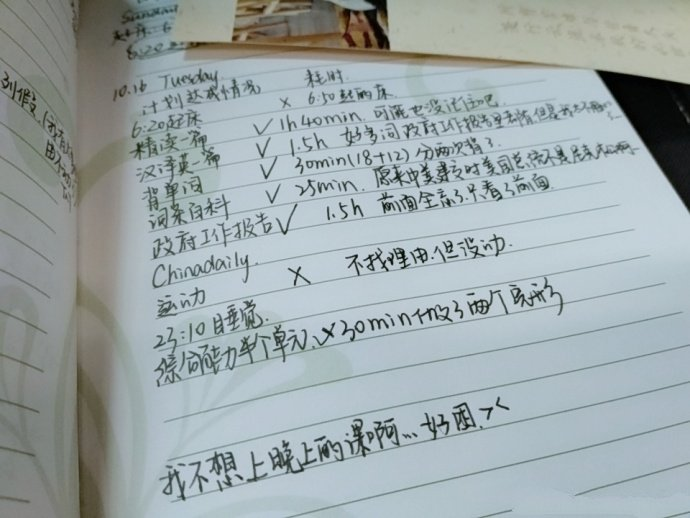 Sunday
6:20
10.16 Tuesday
计划达成情况 耗时
6:20起床 × 6:50起的床
精读一篇 ✓ 1h40min. 可能也没记住吧.
汉译英一篇 ✓ 1.5h 好多词政府工作报告里
背单词 ✓ 30min(18+12)分两次背了.
词条百科 ✓ 25min. 原来中美建交时美国总统不是尼克松啊
政府工作报告 ✓ 1.5h 前面全忘了.只看了前面
Chinadaily.
运动 × 不找理由.但没动.
23:10目睡觉.
综合能力半个单元. ×30min 扣了两个
我不想上晚上的课啊...好困.><
列作文(我有
由不